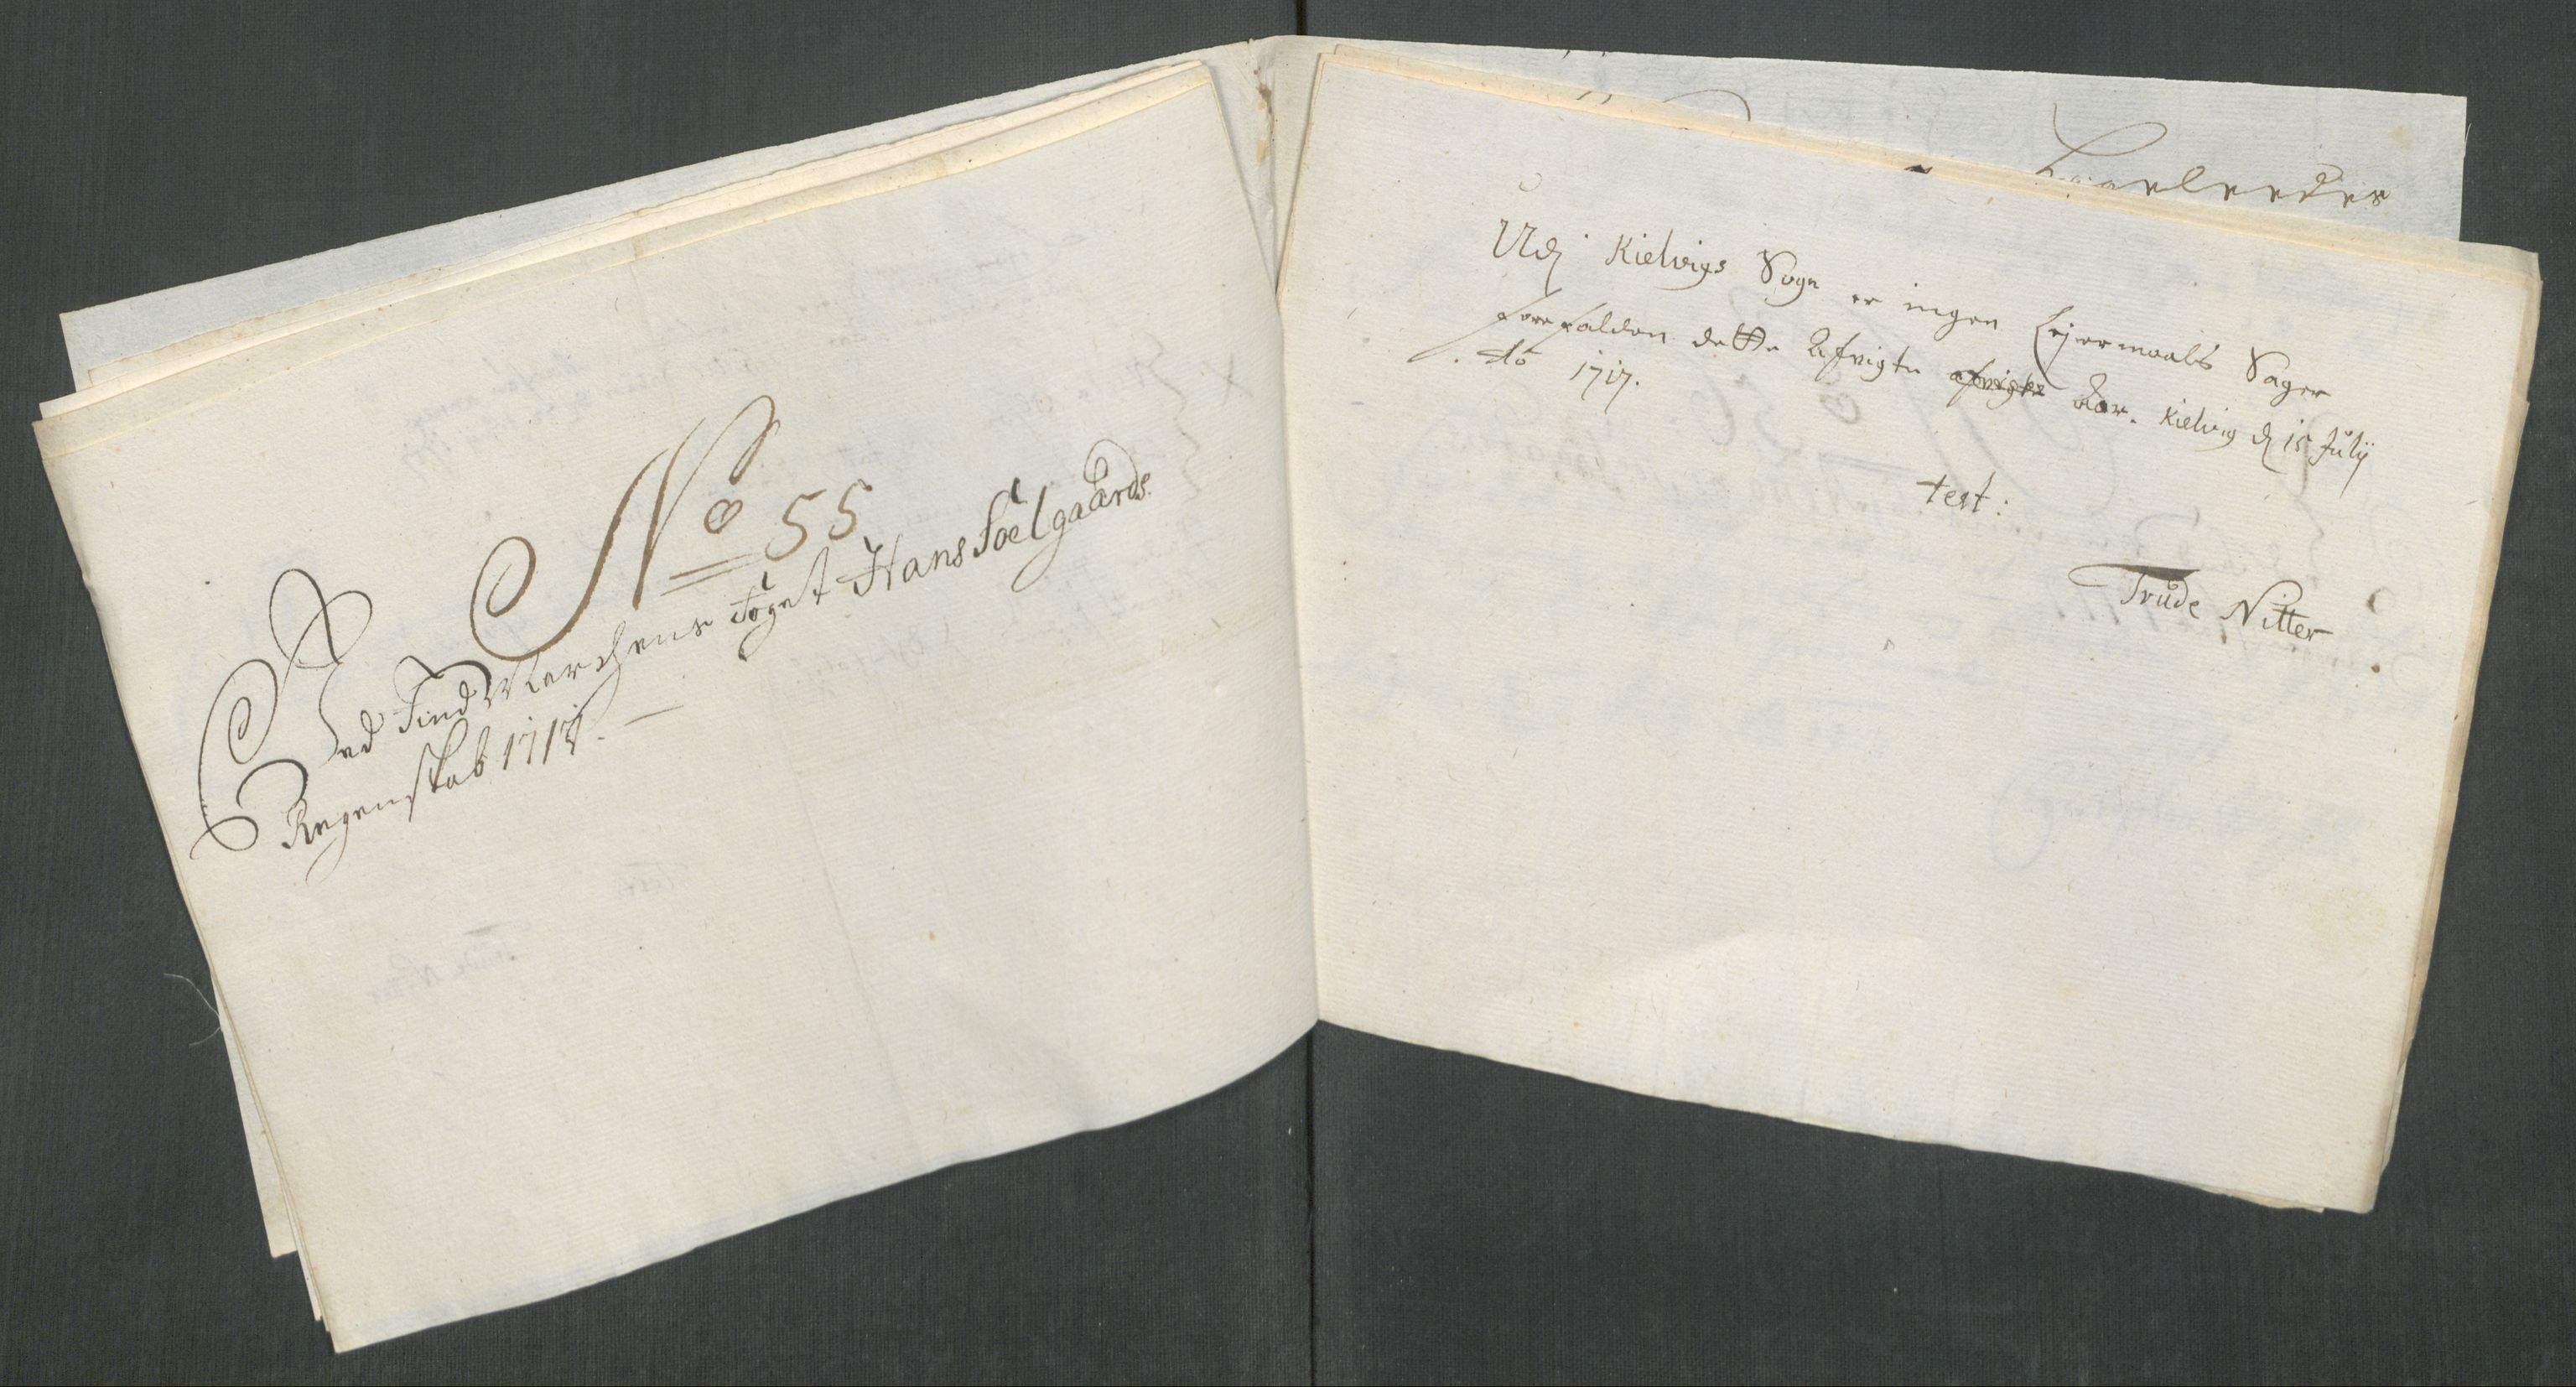 No 55
Ved Find Marchens Foget Hans Soelgaards
Regenskab 1717.
Udj Kielvigs Sogn er ingen Lejermaals Sager
forefalden dette Afvigte afvigte Aar. Kielvig d 15 Julij
Ao 1717.
test:
Trude Nitter